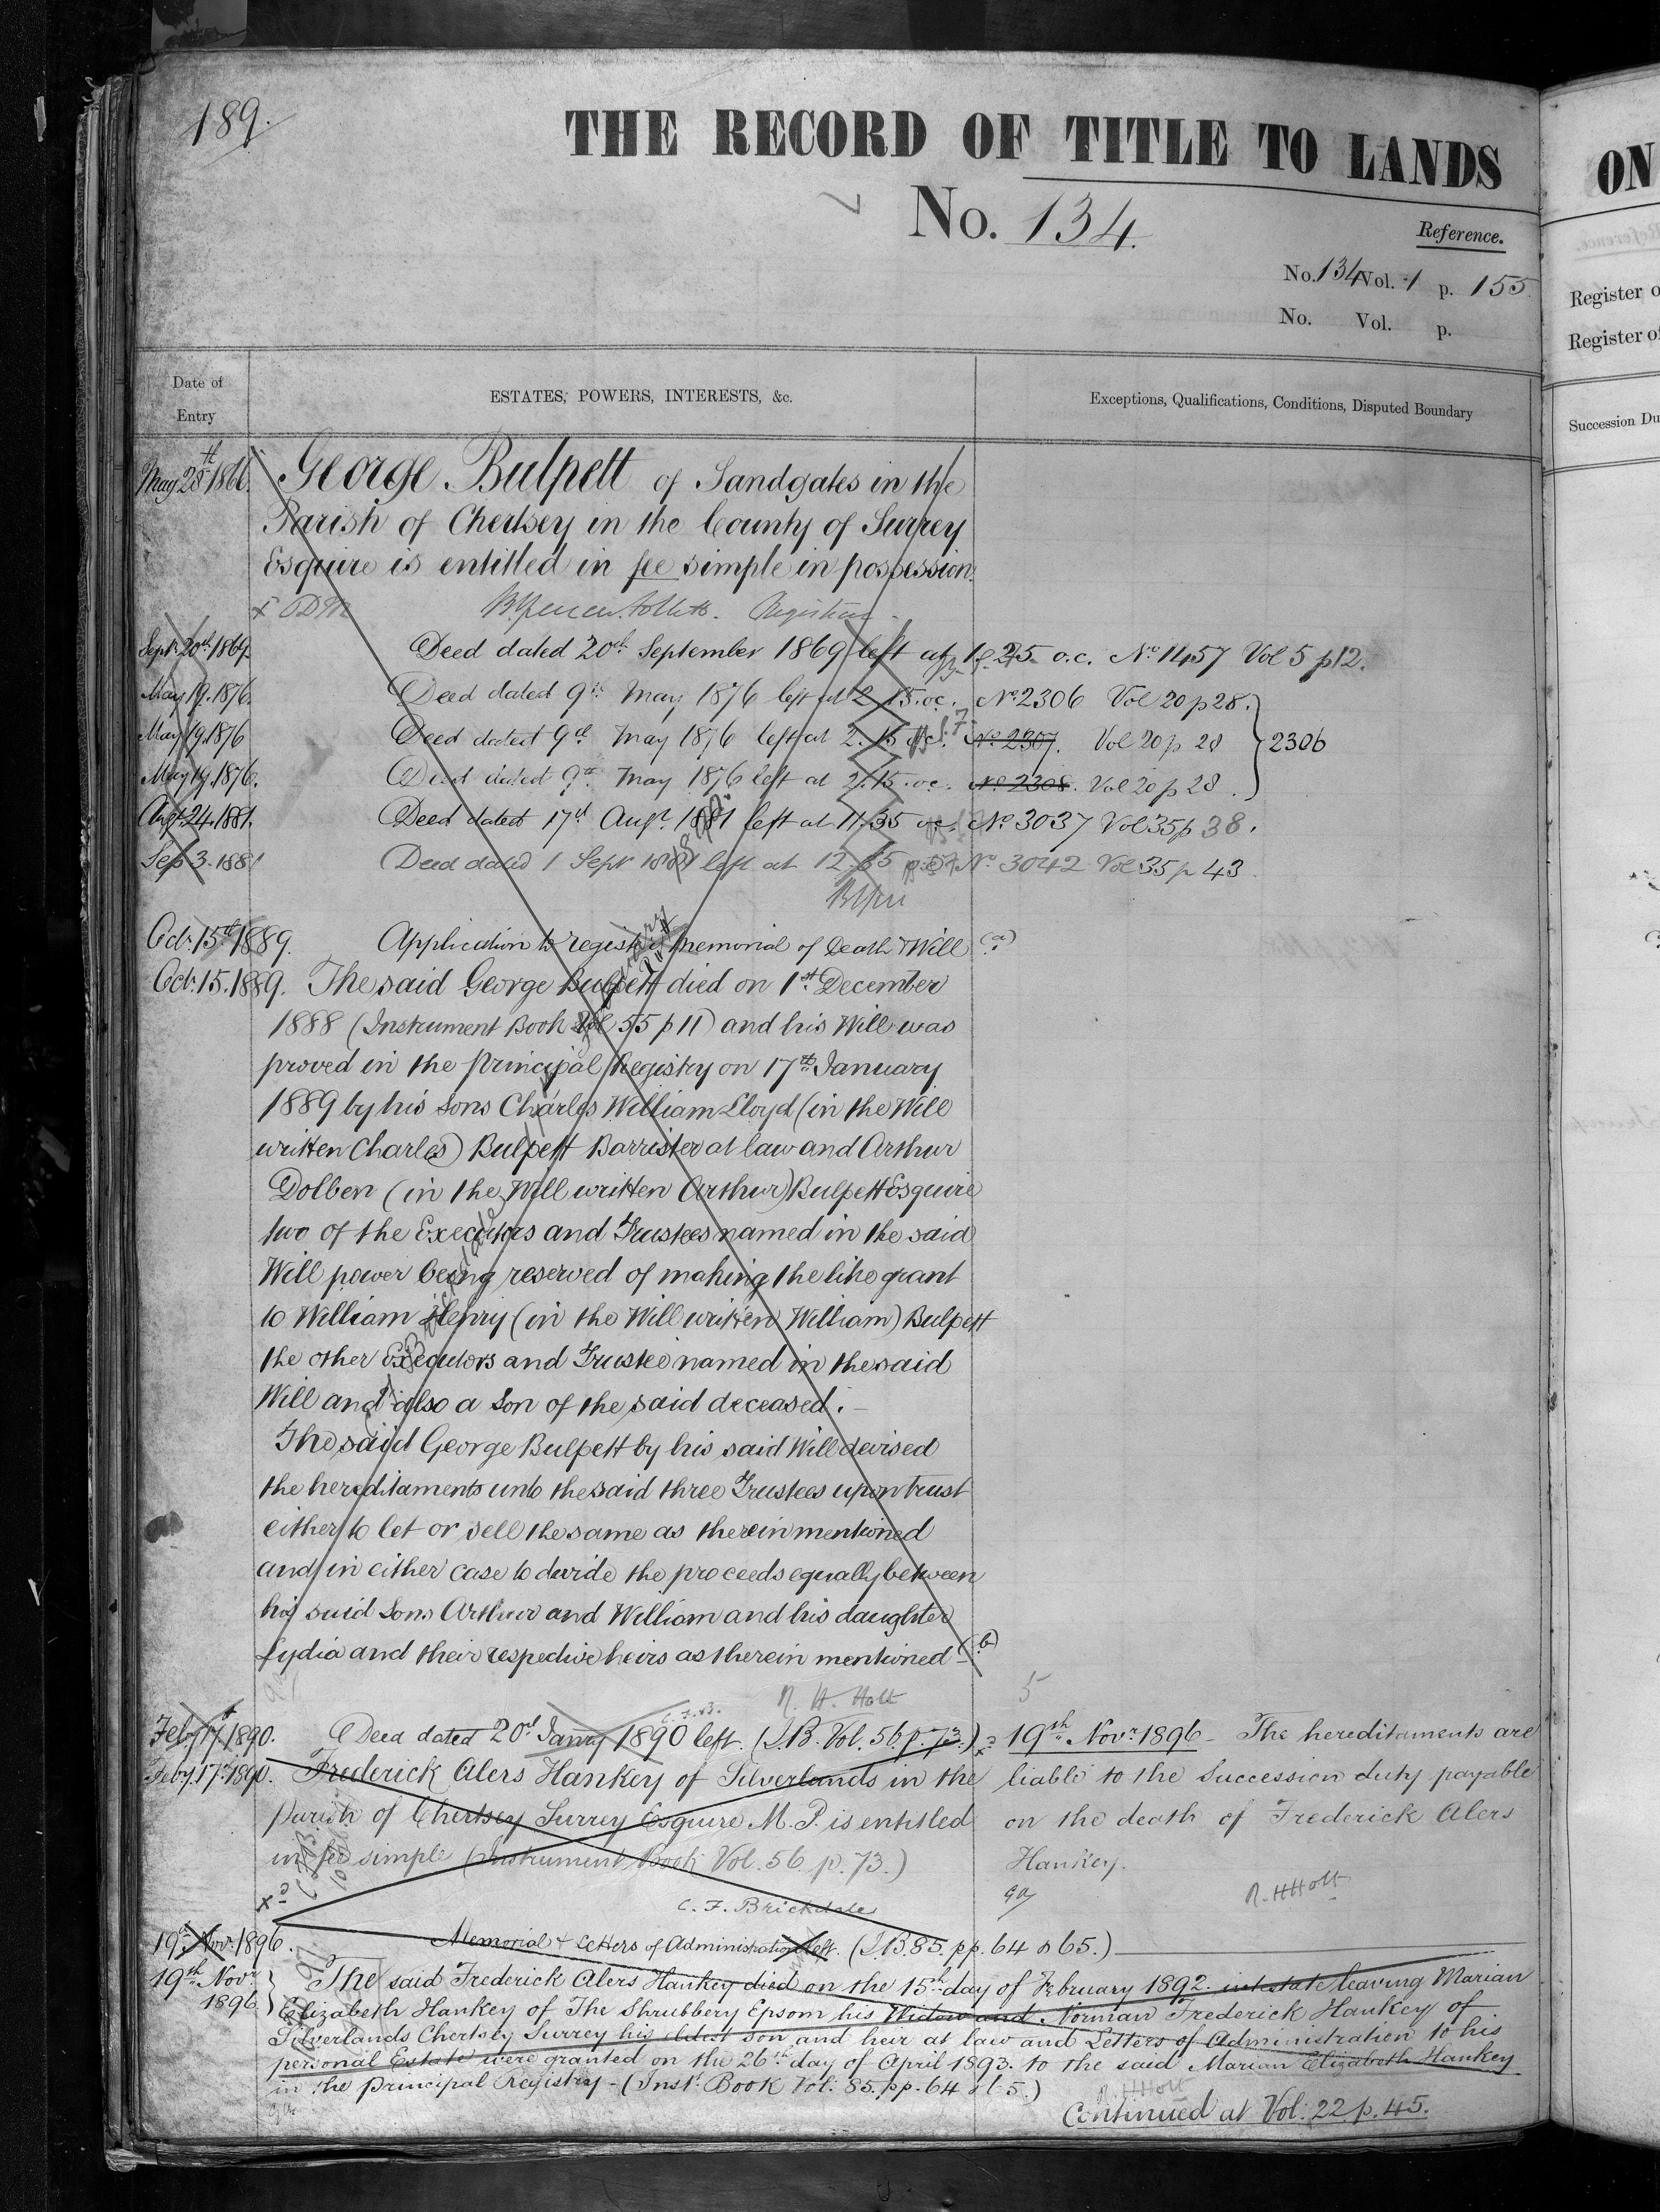 189.
THE RECORD OF TITLE TO LANDS
No. 134.
Reference.
No. 134 Vol. 1 p. 155
No. Vol. p.
Date of Entry
ESTATES, POWERS, INTERESTS, &c.
Exceptions, Qualifications, Conditions, Disputed Boundary
May 28th 1866. George Bulpett of Sandgates in the
Parish of Chertsey in the County of Surrey
Esquire is entitled in fee simple in possession.
Registrar.
Sept. 20th 1869. Deed dated 20th September 1869 left at 1.25 o.c. No 1457 Vol 5 p12.
May 19. 1876. Deed dated 9th May 1876 left at 2.15 oc. No 2306 Vol 20 p 28.
May 19. 1876 Deed dated 9th May 1876 left at 2.15 oc. No 2307. Vol 20 p 28 2306
May 19. 1876. Deed dated 9th May 1876 left at 2.15 oc. No 2308. Vol 20 p 28.
Augt 24. 1881. Deed dated 17th Augt. 1881 left at 11.35 oc. No 3037 Vol 35 p 38.
Sep 3. 1881 Deed dated 1 Sept 1881 left at 12.35 No 3042 Vol 35 p 43
Oct. 15th 1889. Application to register memorial of Death & Will (a)
Oct. 15. 1889. The said George Bulpett died on 1st December
1888 (Instrument Book Vol 55 p 11) and his Will was
proved in the principal Registry on 17th January
1889 by his sons Charles William Lloyd (in the Will
written Charles) Bulpett Barrister at law and Arthur
Dolben (in the Will written Arthur) Bulpett Esquire
two of the Executors and Trustees named in the said
Will power being reserved of making the like grant
to William Henry (in the Will written William) Bulpett
the other Executors and Trustee named in the said
Will and also a Son of the said deceased.
The said George Bulpett by his said Will devised
the hereditaments unto the said three Trustees upon trust
either to let or sell the same as therein mentioned
and in either case to divide the proceeds equally between
his said Sons Arthur and William and his daughter
Lydia and their respective heirs as therein mentioned (b)
R. H. Holt
C. F. B.
Feby 17. 1890. Deed dated 20th Janry 1890 left. (I.B. Vol. 56. p. 73.)
Feby 17th 1890. Frederick Alers Hankey of Silverlands in the
Parish of Chertsey Surrey Esquire M.P. is entitled
in fee simple (Instrument Book Vol. 56 p. 73.)
C. F. Brickdale
5
19th Novr 1896 - The hereditaments are
liable to the succession duty payable
on the death of Frederick Alers
Hankey.
R. H Holt
19th Novr. 1896. Memorial & Letters of Administration left. (I.B. 85. pp. 64 & 65.)
19th Novr 1896 The said Frederick Alers Hankey died on the 15th day of February 1892. intestate leaving Marian
Elizabeth Hankey of The Shrubbery Epsom his Widow and Norman Frederick Hankey of
Silverlands Chertsey Surrey his eldest son and heir at law and Letters of Administration to his
personal Estate were granted on the 26th day of April 1893. to the said Marian Elizabeth Hankey
in the Principal Registry - (Inst. Book Vol. 85. pp. 64 & 65.)
R. H Holt
Continued at Vol. 22 p. 45.
ON
Register o
Register of
Succession Du